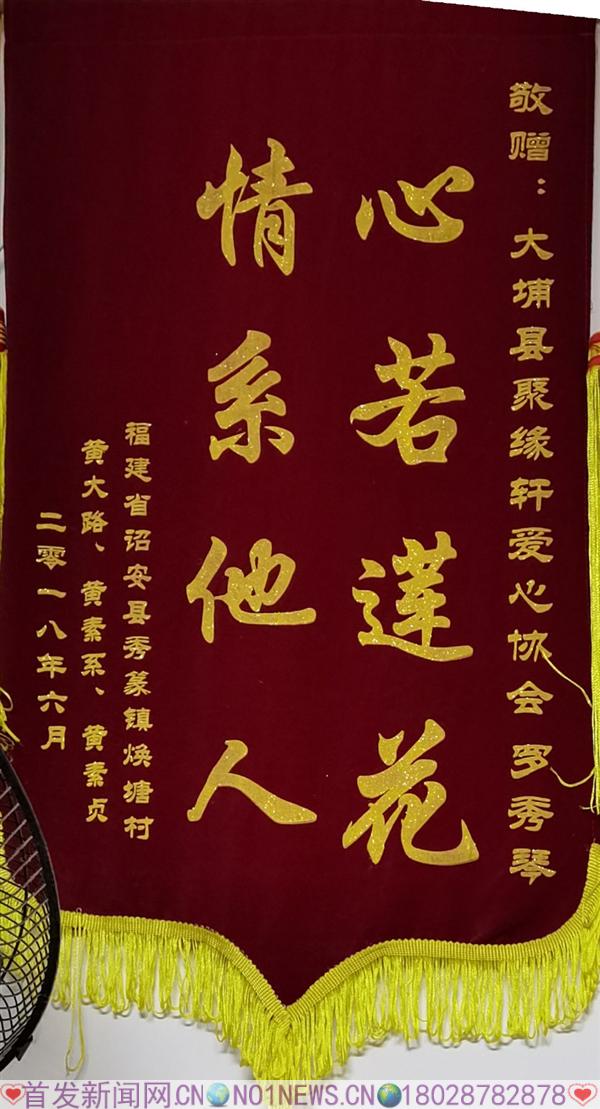 敬赠：大埔县聚缘轩爱心协会罗秀琴
心若莲花
情系他人
福建省诏安县秀篆镇焕塘村
黄大路、黄素系、黄素贞
二零一八年六月
首发新闻网.CN NO1NEWS.CN 18028782878